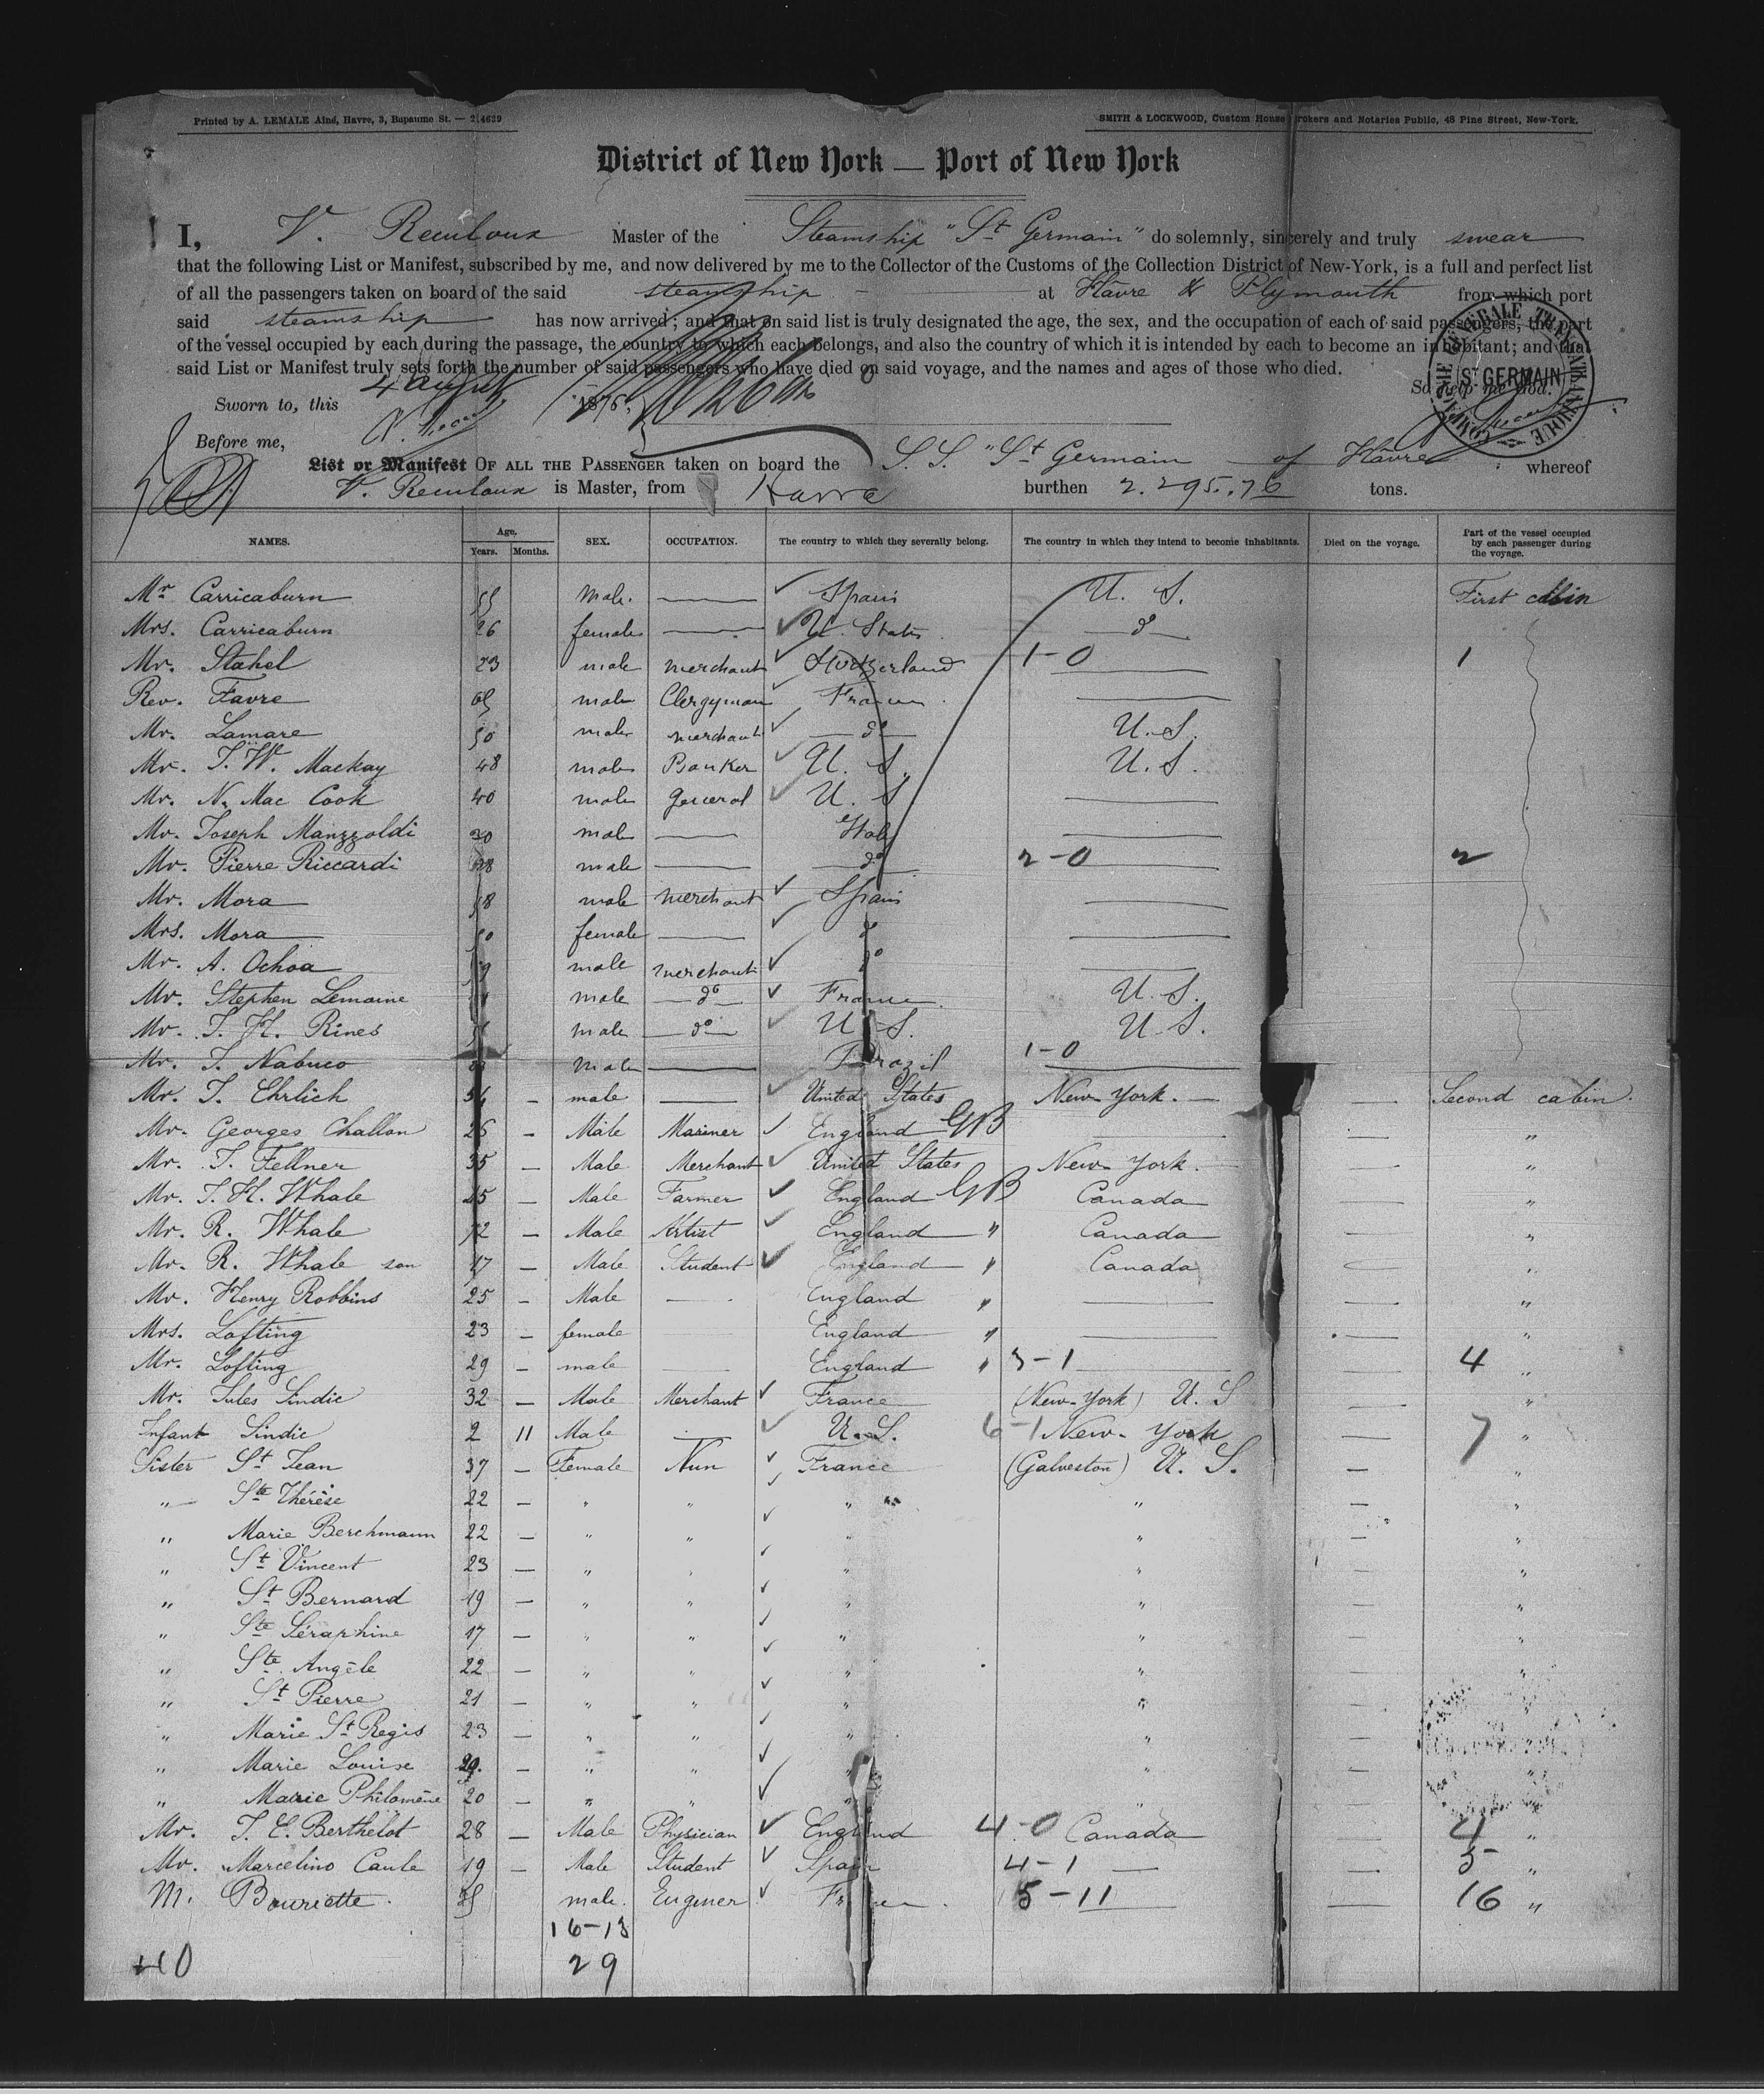 Printed by A. LEMALE Aîné, Havre, 3, Bapaume St. — 214629
SMITH & LOCKWOOD, Custom House Brokers and Notaries Public, 48 Pine Street, New-York.
District of New York — Port of New York
I, V. Reculoux Master of the Steamship "St Germain" do solemnly, sincerely and truly swear
that the following List or Manifest, subscribed by me, and now delivered by me to the Collector of the Customs of the Collection District of New-York, is a full and perfect list
of all the passengers taken on board of the said steamship at Havre & Plymouth from which port
said steamship has now arrived; and that on said list is truly designated the age, the sex, and the occupation of each of said passengers, the part
of the vessel occupied by each during the passage, the country to which each belongs, and also the country of which it is intended by each to become an inhabitant; and that
said List or Manifest truly sets forth the number of said passengers who have died on said voyage, and the names and ages of those who died.
So help me God.
COMPAGNIE GÉNÉRALE TRANSATLANTIQUE
ST GERMAIN
Sworn to, this 4 august 1876
Before me,
List or Manifest OF ALL THE PASSENGER taken on board the S.S. "St Germain of Havre whereof
V. Reculoux is Master, from Havre burthen 2.295.76 tons.
NAMES. Age. Years. Months. SEX. OCCUPATION. The country to which they severally belong. The country in which they intend to become inhabitants. Died on the voyage. Part of the vessel occupied by each passenger during the voyage.
Mr Carricaburn 55 Male. — Spain U. S. First cabin
Mrs. Carricaburn 26 female — U. States do
Mr. Stahel 23 male merchant Switzerland 1-0 — 1
Rev. Favre 65 male Clergyman France —
Mr. Lamare 50 male merchant do U.S.
Mr. J. W. Mackay 48 male Banker U. S. U.S.
Mr. N. Mac Cook 40 male general U. S —
Mr. Joseph Manzzoldi 30 male — Italy —
Mr. Pierre Riccardi 28 male — do 2-0 — 2
Mr. Mora 58 male merchant Spain —
Mrs. Mora 50 female — do —
Mr. A. Ochoa male merchant do —
Mr. Stephen Lemoine male do France U.S.
Mr. J. H. Rines male do U.S. U.S.
Mr. J. Nabuco male — Brazil 1-0 —
Mr. J. Ehrlich 54 - male — United States New-York. — — Second cabin.
Mr. Georges Challon 26 - Male Mariner England GB — — "
Mr. J. Fellner 35 — Male Merchant United States New-York. — "
Mr. J. H. Whale 45 - Male Farmer England GB Canada — "
Mr. R. Whale 72 - Male Artist England " Canada — "
Mr. R. Whale son 17 - Male Student England " Canada — "
Mr. Henry Robbins 25 - Male — England " — — "
Mrs. Lofting 23 - female England " — — "
Mr. Lofting 29 - male — England " 3-1 — — 4 "
Mr. Jules Sindic 32 — Male Merchant France (New-York) U. S — "
Infant Sindic 2 11 Male — U.S. 6-1 New-York — 7 "
Sister St Jean 37 — Female Nun France (Galveston) U. S. — "
" Ste Thérèse 22 — " " " " — "
" Marie Berchmann 22 — " " " " — "
" St Vincent 23 — " " " " — "
" St Bernard 19 — " " " " — "
" Ste Séraphine 17 — " " " " — "
" Ste Angèle 22 — " " " " — "
" St Pierre 21 — " " " " — "
" Marie St Regis 23 — " " " " — "
" Marie Louise 29. — " " " — "
" Marie Philomène 20 — " " " " — "
Mr. J. E. Berthelot 28 — Male Physician England 4-0 Canada — 4 "
Mr. Marcelino Caule 19 — Male Student Spain 4-1 — — 5 "
M. Bouriette. male. Enginer France 5-11 — — 16 "
16-13
40 29